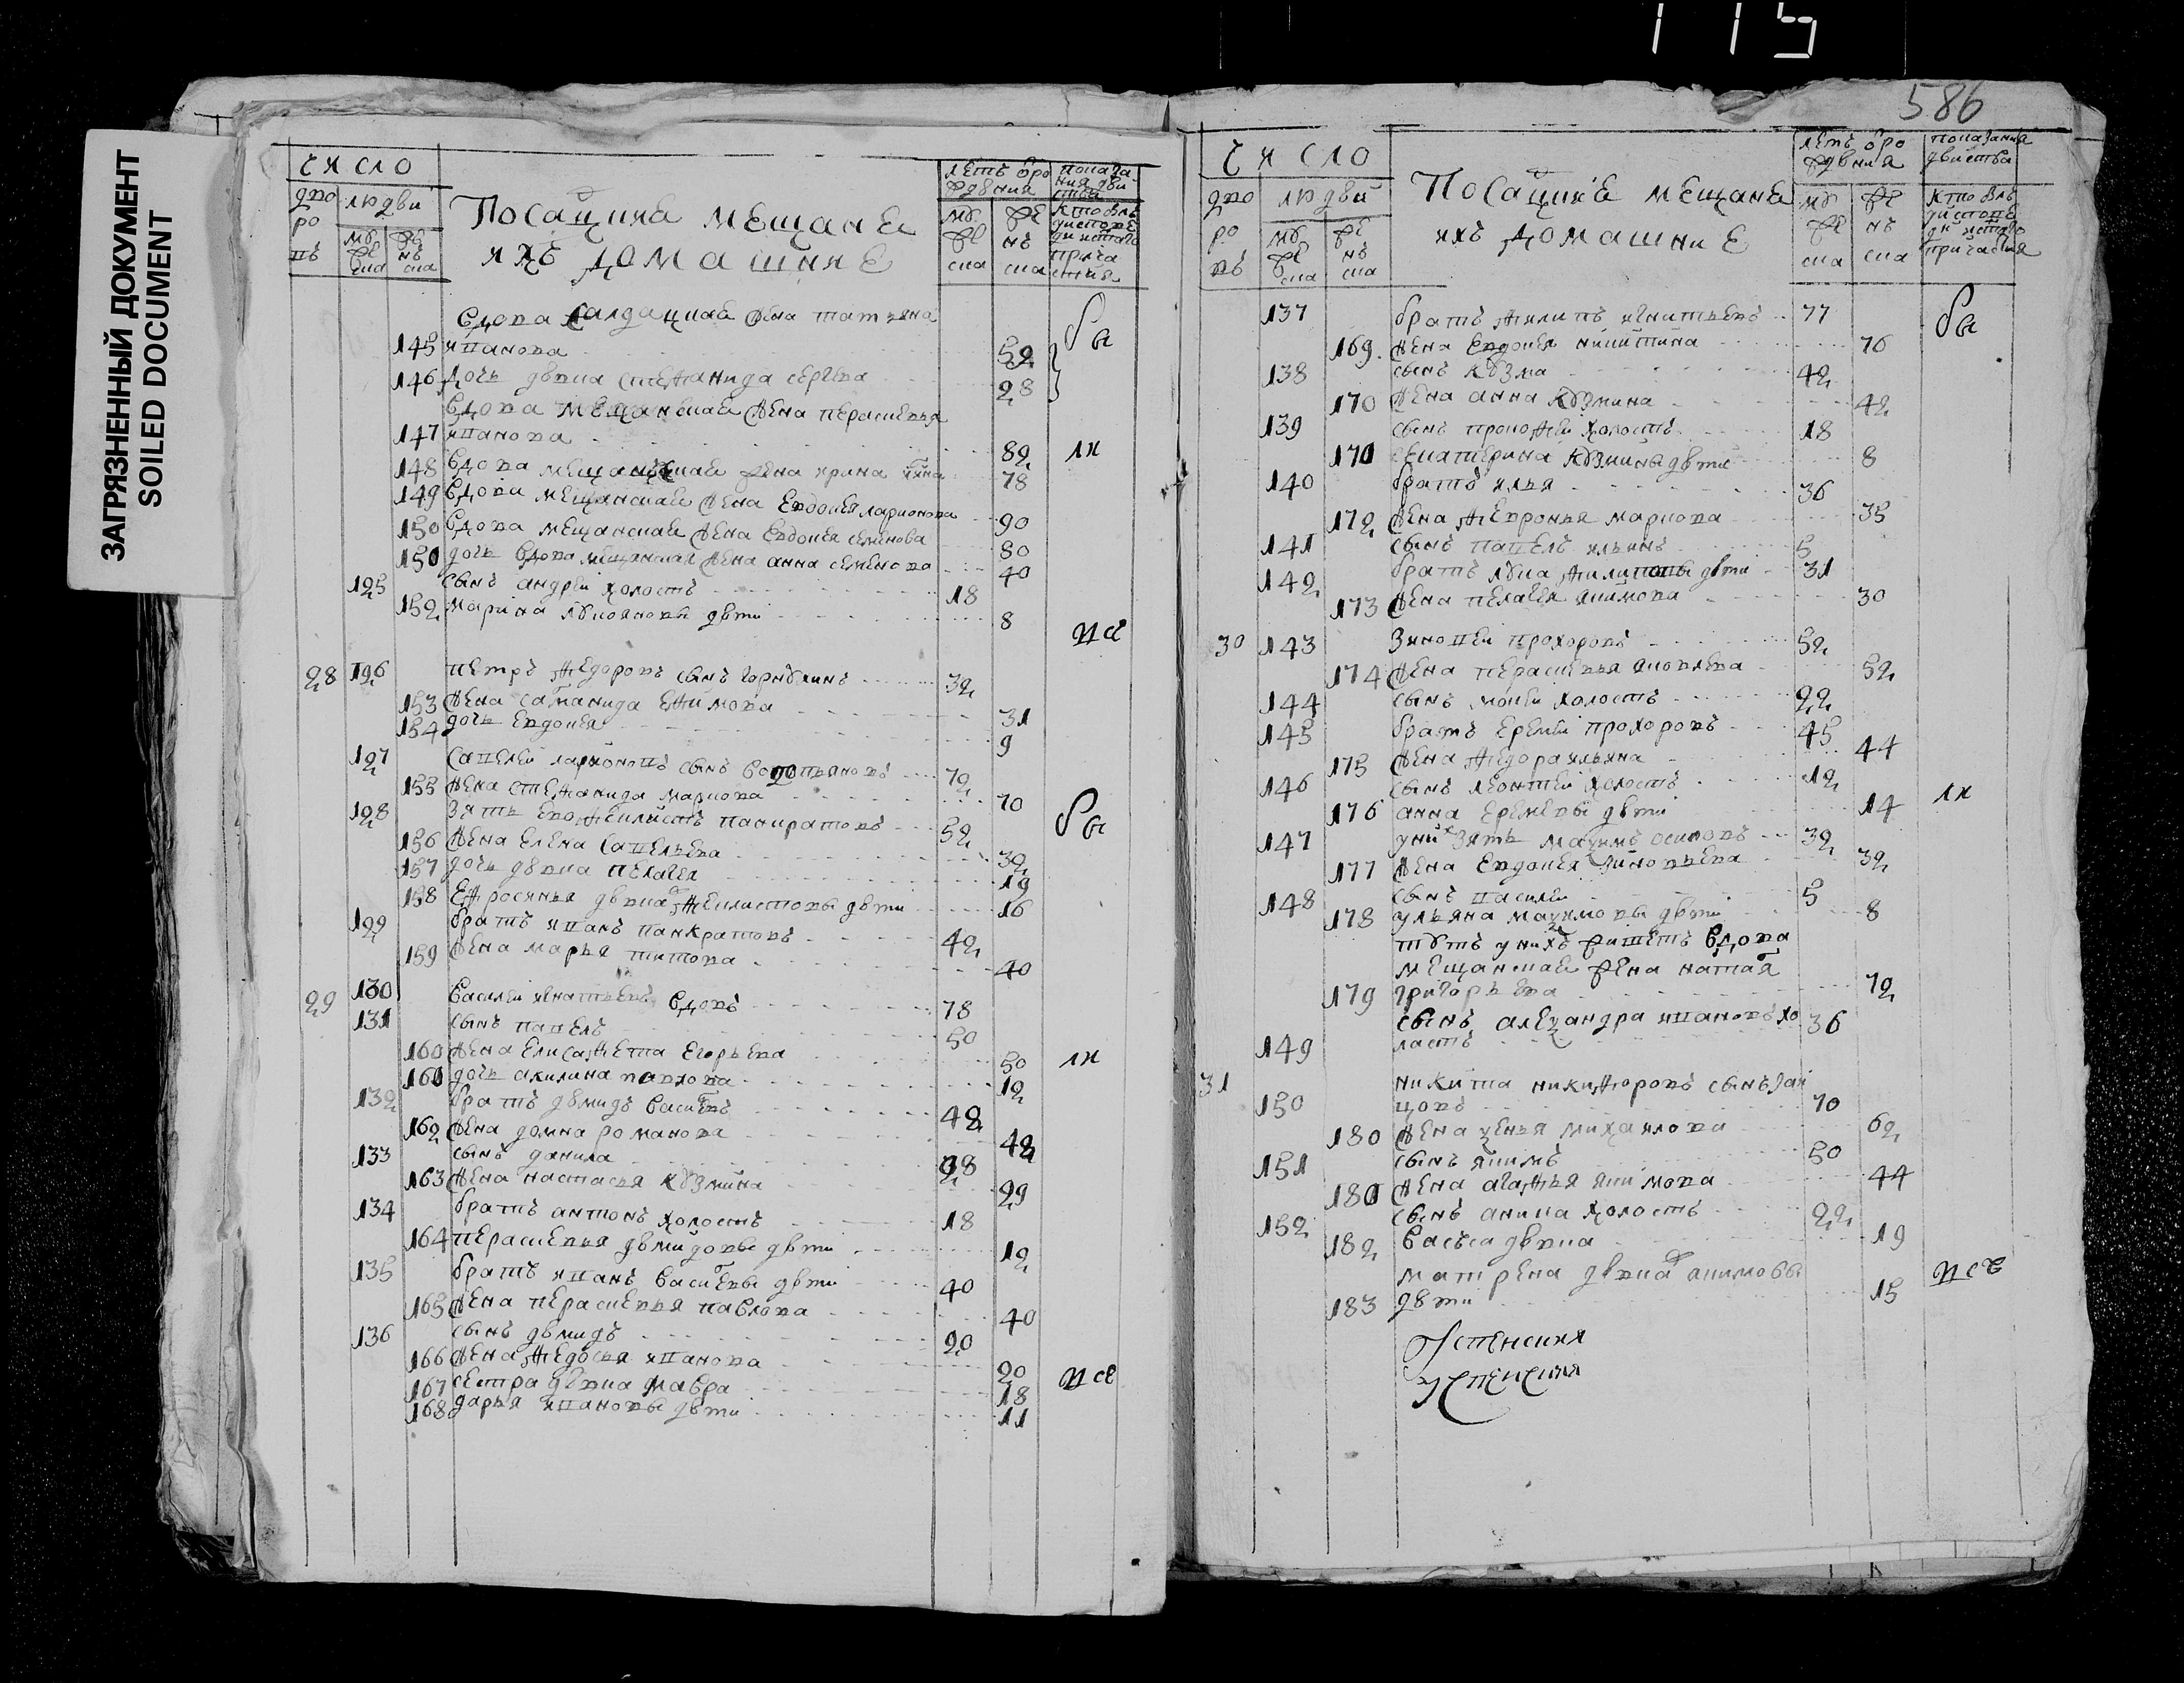 115
ЗАГРЯЗНЕННЫЙ ДОКУМЕНТ
SOILED DOCUMENT
число
дворовъ
людей
мужеска
женска
Посацкие мещане
ихъ домашние
летъ от рождения
мужеска
женска
показания действа
кто былъ у исповеди и святаго причастия
вдова салдацкая жена татьяна
145 иванова 52 бы
146 дочь девка стефанида сергева 28
вдова мещанская жена парасковья
147 иванова 82 ли
148 вдова мещанская жена ирина 78
149 вдова мещанская жена евдокия ларионова 90
150 вдова мещанская жена евдокия семенова 80
150 дочь вдова мещанская жена анна семенова 40
125 сынъ андрей холостъ 18
152 марина лукояновы дети 8
28 126 петръ федоровъ сынъ 32
153 жена ефимова 31
154 дочь евдокия 9
127 савелей ларионовъ сынъ 72
155 жена стефанида маркова 70
128 зять ево феклистъ панкратовъ 52 бы
156 жена елена савельева 32
157 дочь девка пелагея 19
158 ефросинья девка феклистовы дети 16
129 братъ иванъ панкратовъ 42
159 жена марья титова 40
29 130 василей игнатьевъ вдовъ 78
131 сынъ павелъ 50
160 жена елисафета егорьева 50 ли
161 дочь акилина павлова 12
132 братъ демидъ васильевъ 48
162 жена домна романова 48
133 сынъ данила 28
163 жена настасья кузмина 29
134 братъ антонъ холостъ 18
164 парасковья демидовы дети 12
135 братъ иванъ васильевы дети 40
165 жена парасковья павлова 40
136 сынъ демидъ 20
166 жена федосья иванова 20
167 сестра девка мавра 18
168 дарья ивановы дети 11
586
число
дворовъ
людей
мужеска
женска
Посацкие мещане
ихъ домашние
летъ от рождения
мужеска
женска
показания действа
кто былъ у исповеди и святаго причастия
137 братъ филипъ игнатьевъ 77 бы
169 жена евдокия никитина 76
138 сынъ кузма 42
170 жена анна кузмина 42
139 сынъ прокофей холостъ 18
171 екатерина кузмины дети 8
140 братъ илья 36
172 жена февронья маркова 35
141 сынъ павелъ ильинъ 5
142 братъ лука филиповы дети 31
173 жена пелагея якимова 30
30 143 зиновей прохоровъ 52
174 жена парасковья яковлева 52
144 сынъ холостъ 22
145 братъ еремей прохоровъ 45
175 жена федора ильина 44
146 сынъ леонтей холостъ 12
176 анна еремеевы дети 14 ли
147 у нихъ зять максимъ осиповъ 32
177 жена евдокия зиновьева 32
148 сынъ василей 5
178 ульяна максимовы дети 8
тутъ у нихъ живетъ вдова
мещанская жена наталья
179 григорьева 72
сынъ александра ивановъ хо 36
149 лостъ
31 никита никифоровъ сынъ зай
150 цовъ 70
180 жена ксенья михаилова 62
151 сынъ якимъ 50
181 жена агафья якимова 44
152 сынъ аника холостъ 22
182 васса девка 19
матрена девка якимовы
183 дети 15
Успенския
Успенския